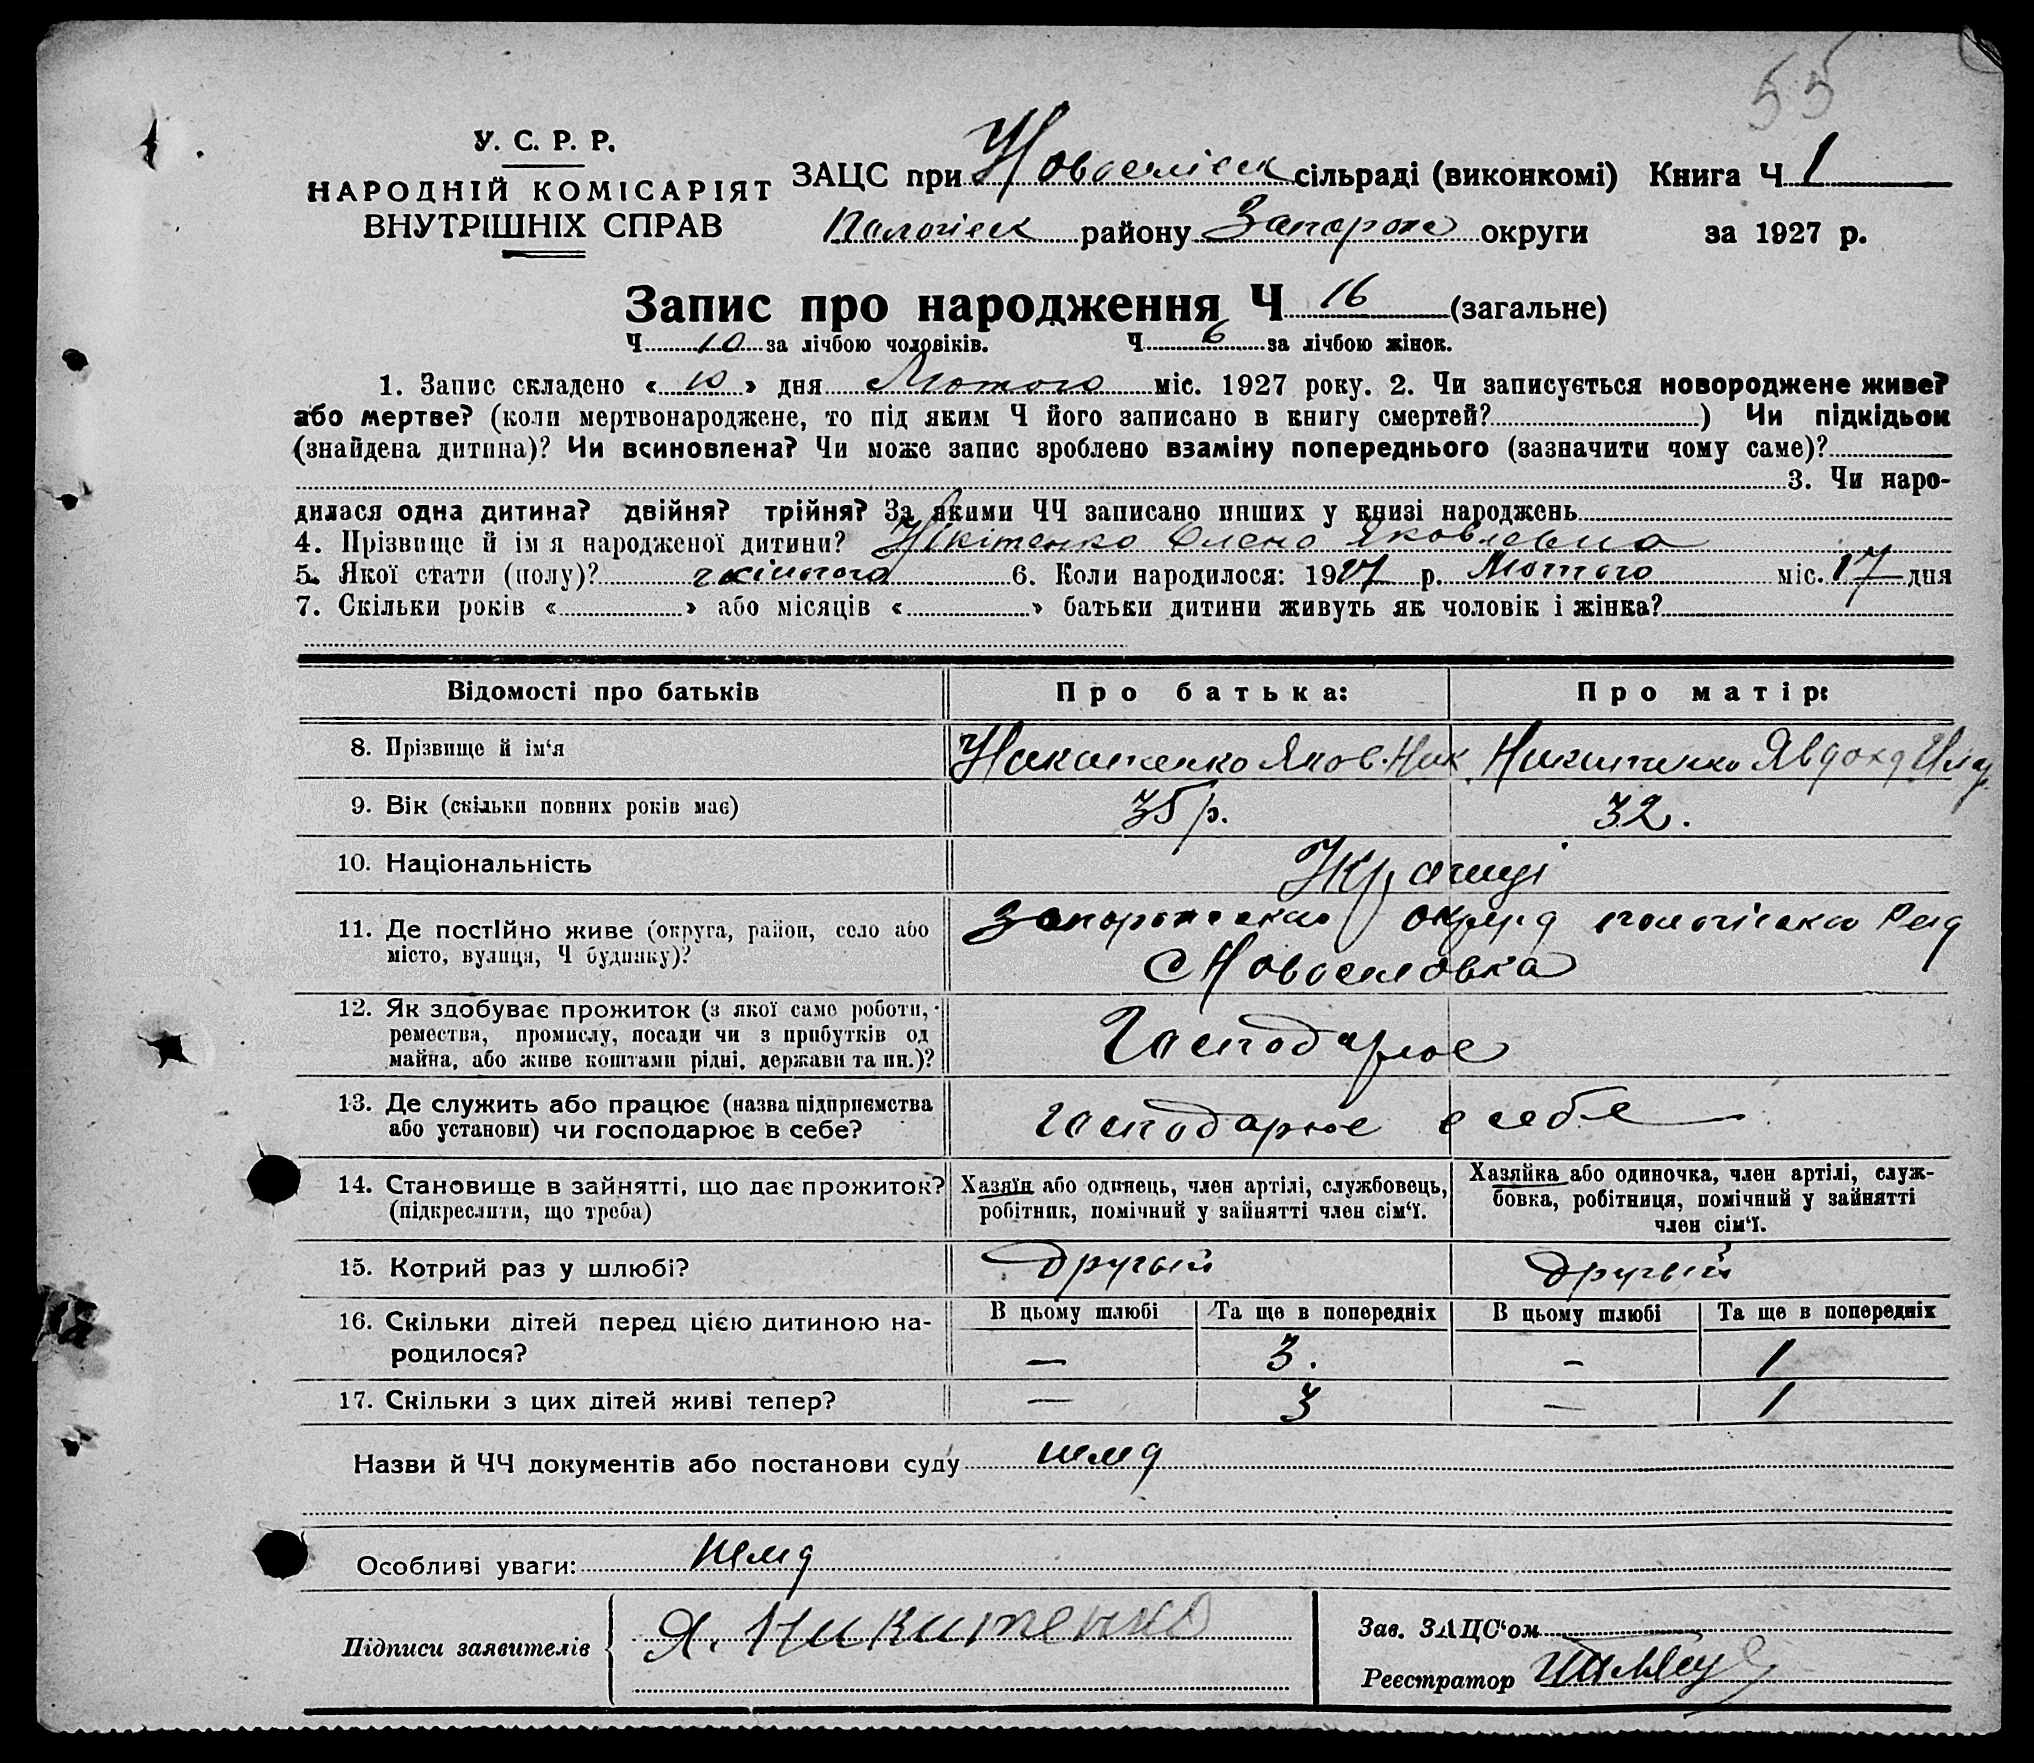 55
У. С. Р. Р.
НАРОДНІЙ КОМІСАРІЯТ
ВНУТРІШНІХ СПРАВ
ЗАЦС при Новоселіськ сільраді (виконкомі) Книга Ч 1
Пологіськ району Запорож округи за 1927 р.
Запис про народження Ч 16 (загальне)
Ч 10 за лічбою чоловіків. Ч 6 за лічбою жінок.
1. Запис складено « » дня Лютого міс. 1927 року. 2. Чи записується новороджене живе?
або мертве? (коли мертвонароджене, то під яким Ч його записано в книгу смертей? ) Чи підкідьок
(знайдена дитина)? Чи всиновлена? Чи може запис зроблено взаміну попереднього (зазначити чому саме)?
3. Чи наро-
дилася одна дитина? двійня? трійня? За якими ЧЧ записано инших у книзі народжень
4. Прізвище й ім я народженої дитини? Нікітенко Олена Яковлевна
5. Якої стати (полу)? жіночого 6. Коли народилося: 1927 р. Лютого міс. 17 дня
7. Скільки років « » або місяців « » батьки дитини живуть як чоловік і жінка?
Відомості про батьків Про батька: Про матір:
8. Прізвище й ім‘я Никитенко Яков. Ник Никитенко Явдоха
9. Вік (скільки повних років має) 35 р. 32.
10. Національність Українці
11. Де постійно живе (округа, район, село або
місто, вулиця, Ч будинку)?
Запорожська округа пологіська
с Новоселовка
12. Як здобуває прожиток (з якої саме роботи,
ремества, промислу, посади чи з прибутків од
майна, або живе коштами рідні, держави та ин.)?
Господарює
13. Де служить або працює (назва підприємства
або установи) чи господарює в себе?
господарює в себе
14. Становище в зайнятті, що дає прожиток?
(підкреслити, що треба)
Хазяїн або одинець, член артілі, службовець,
робітник, помічний у зайнятті член сім‘ї.
Хазяйка або одиночка, член артілі, служ-
бовка, робітниця, помічний у зайнятті
член сім‘ї.
15. Котрий раз у шлюбі? Другый Другый
16. Скільки дітей перед цією дитиною на-
родилося?
В цьому шлюбі Та ще в попередніх В цьому шлюбі Та ще в попередніх
— 3. - 1
17. Скільки з цих дітей живі тепер? — 3 — 1
Назви й ЧЧ документів або постанови суду нема
Особливі уваги: нема
Підписи заявителів Я. Никитенко
Зав. ЗАЦС‘ом
Реєстратор